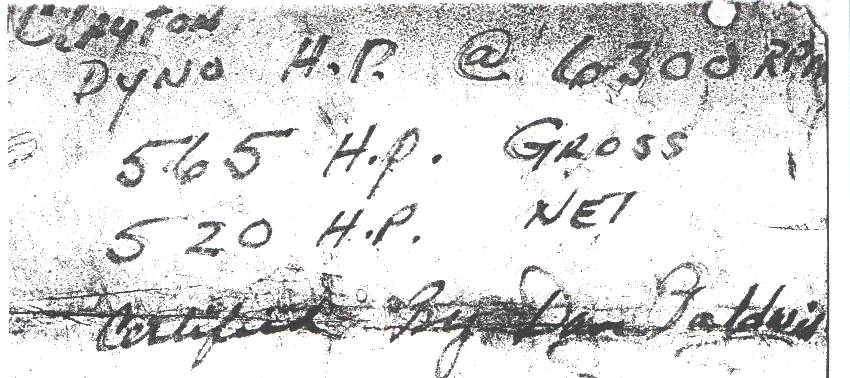 Clayton
Dyno H.P. @ 6300 RPM
565 H.P. GROSS
520 H.P. NET
Certified By Dan Baldwin